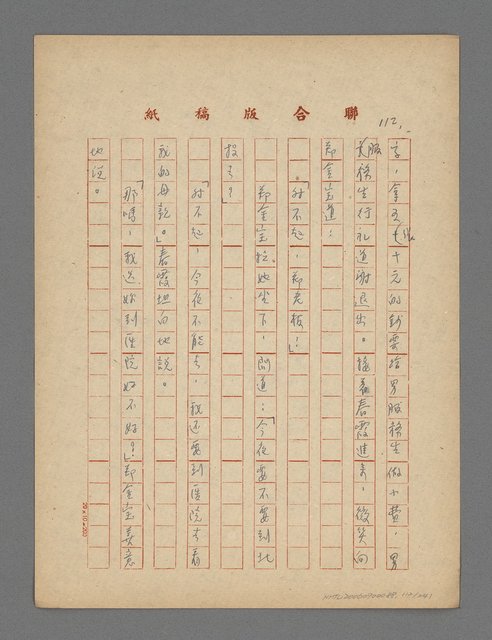 聯合版稿紙
112.
子，拿五十元的鈔票給男服務生做小費，男
服務生行礼道謝退出。接着春霞進來，微笑向
鄭金宝道：
「对不起，鄭老板！」
鄭金宝拉她坐下，問道：「今夜要不要到北
投了？」
「对不起，今夜不能去，我还要到医院去看
我的母親。」春霞坦白地説。
「那嗎，我送妳到医院好不好？」鄭金宝美意
地説。
20×10=200